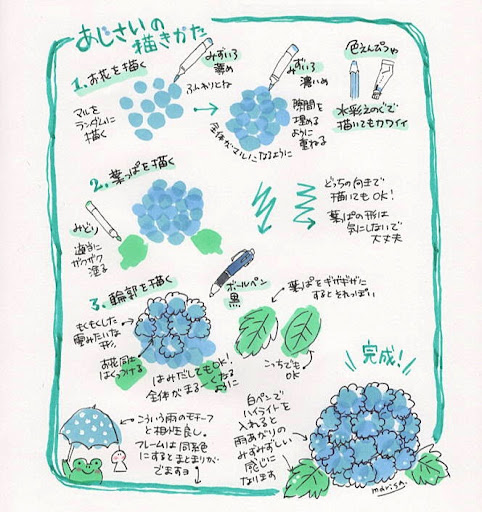 あじさいの
描きかた
1. お花を描く
みずいろ
薄め
ふんわりとね
マルを
ランダムに
描く
みずいろ
濃いめ
隙間を
埋める
ように
重ねる
全体がマルくなるように
色えんぴつや
水彩えのぐで
描いてもカワイイ
2. 葉っぱを描く
みどり
適当に
ガクガク
塗る
どっちの向きで
描いてもOK!
葉っぱの形は
気にしないで
大丈夫
3. 輪郭を描く
ボールペン
黒
もくもくした
雲みたいな
形。
お花同士
はくっつける
はみだしてもOK!
全体がまる〜くなる
ように
葉っぱをギザギザに
するとそれっぽい
こっちでも
OK
こういう雨のモチーフ
と相性良し。
フレームは同系色
にするとまとまりが
でますヨ
白ペンで
ハイライトを
入れると
雨あがりの
みずみずしい
感じに
なります
完成!
marisa.